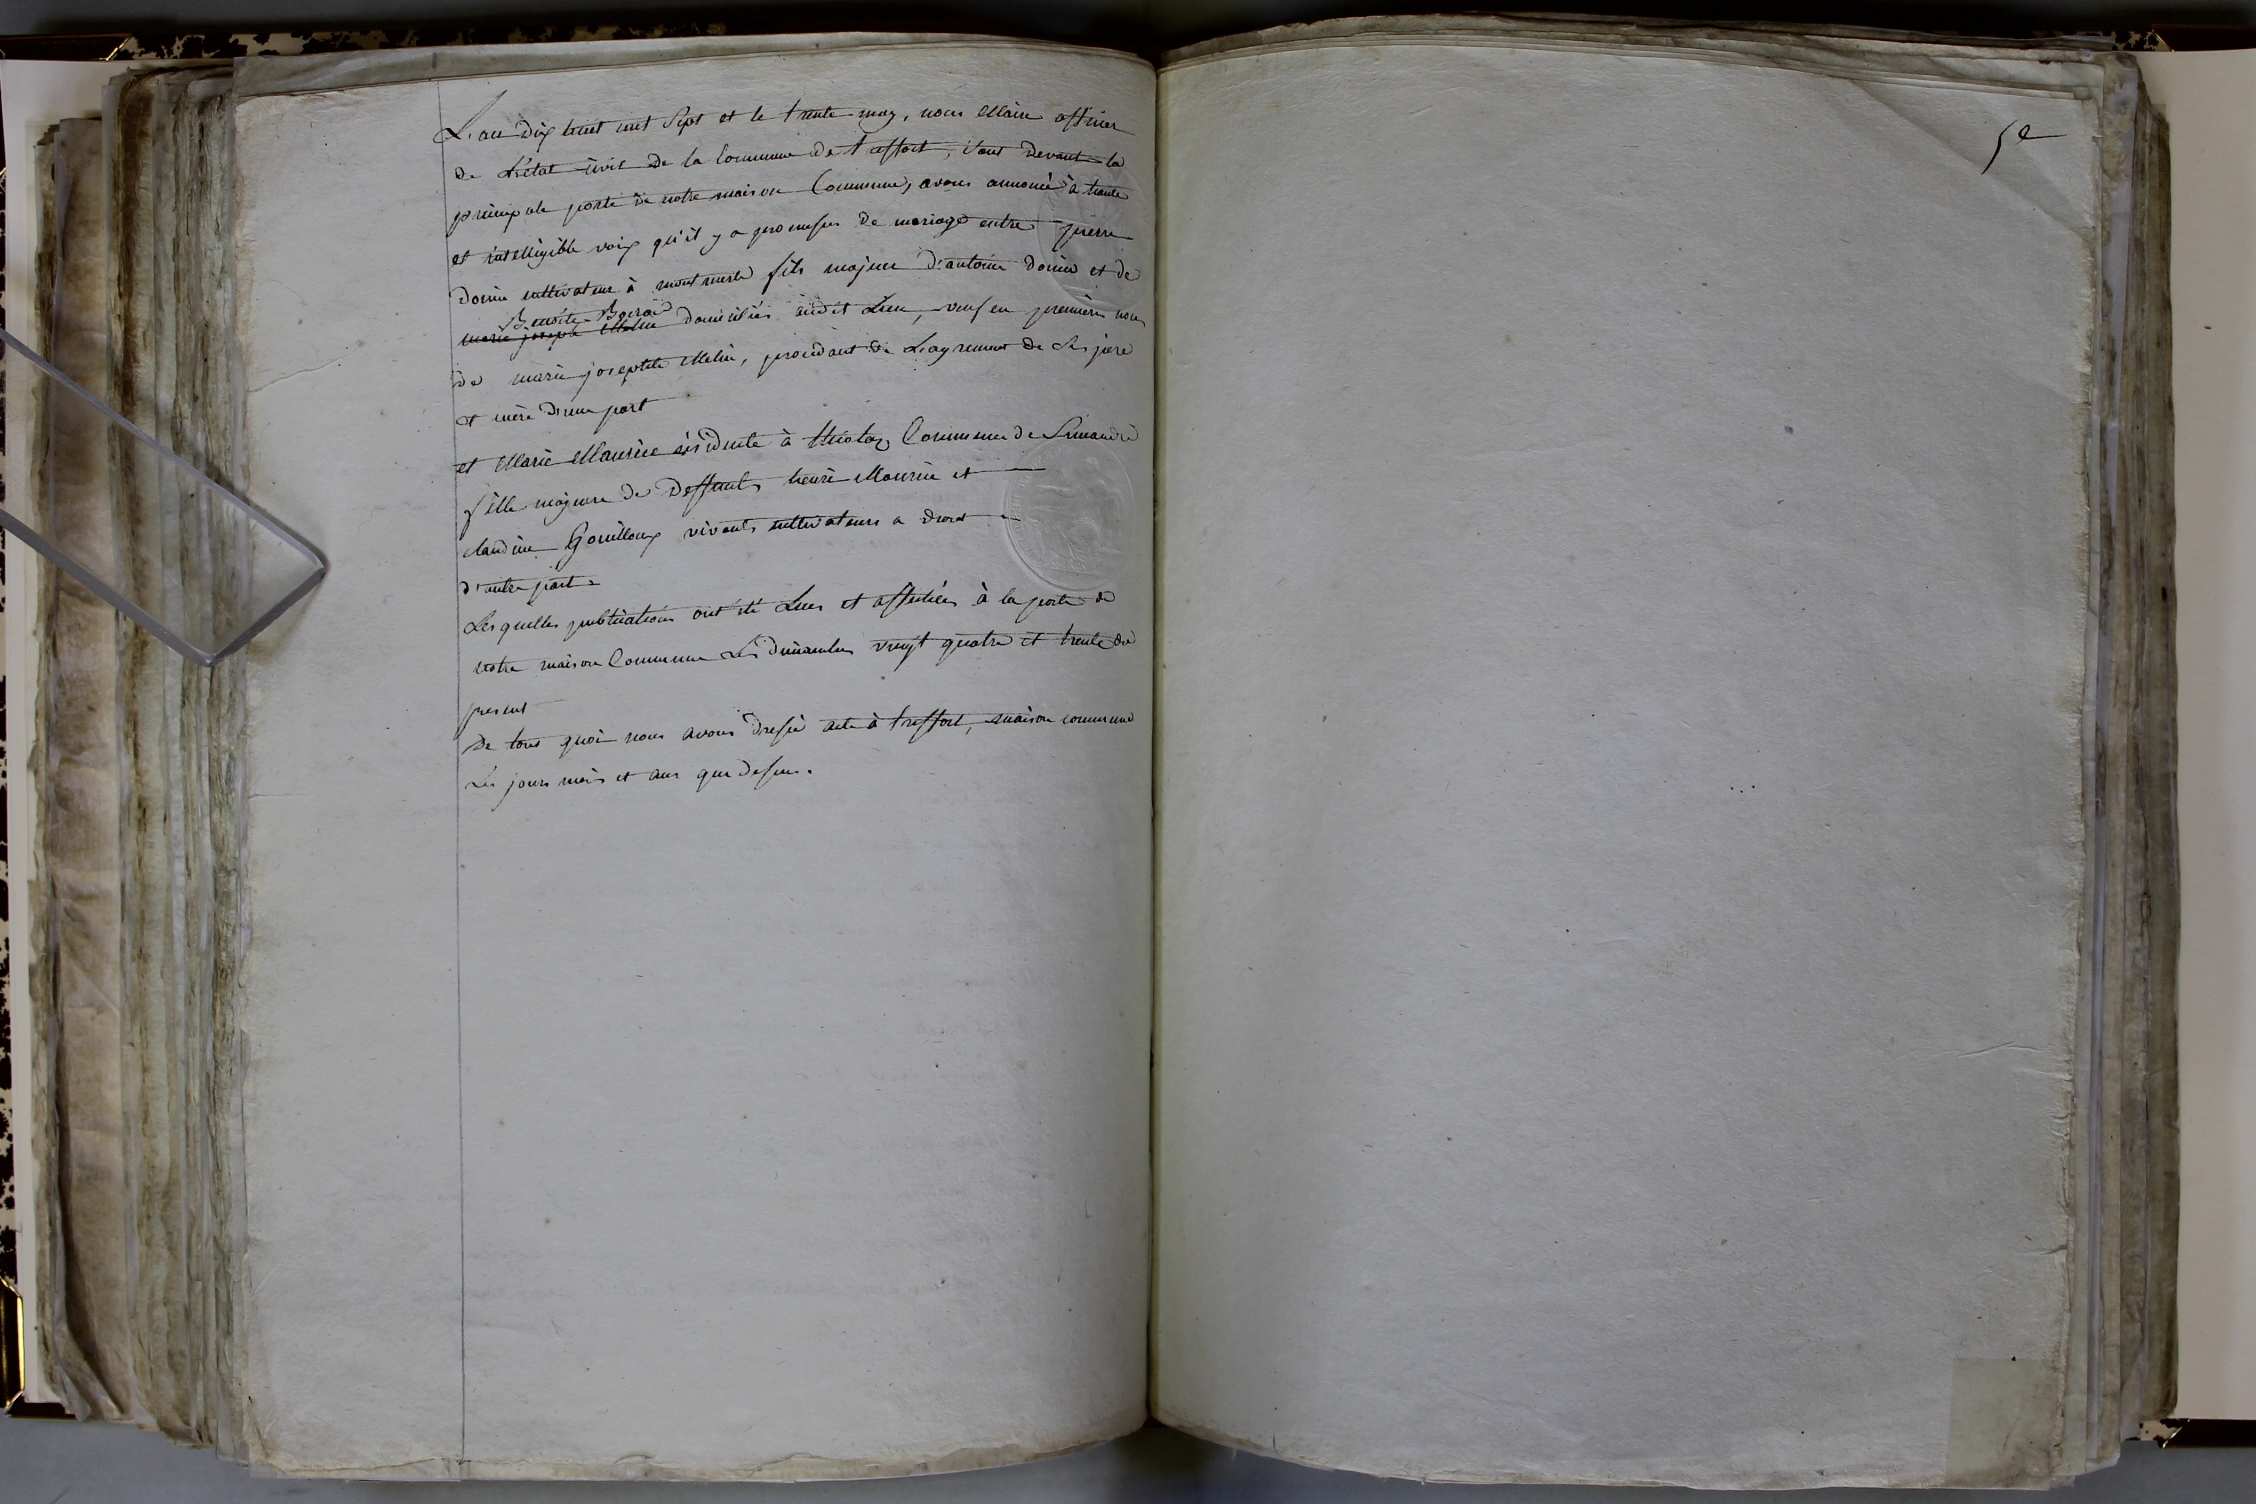 L'an dix huit cent sept et le trente may, nous Maire officier
de L'état civil de la Commune de treffort, étant devant la
principale porte de notre maison Commune, avons annoncé à haute
et intelligible voix qu'il y a promesses de mariage entre pierre
donin cultivateur à montmerle fils majeur d'antoine donin et de
Benoite
marie joseph Melin domiciliés audit Lieu, veuf en première noces
de marie josephte Melin, procédant de L'agrement de Ses père
et mère d'une part
et Marie Maurice résidente à Commune de Simandre
fille majeure de deffunts henri Maurice et
claudine Gouilloux vivants cultivateurs a drom
d'autre part.
Lesquelles publications ont été Lues et affichées à la porte de
notre maison Commune Les dimanches vingt quatre et trente du
present
De tout quoi nous avons dressé acte à treffort, maison commune
Les jours mois et ans que dessus.
50